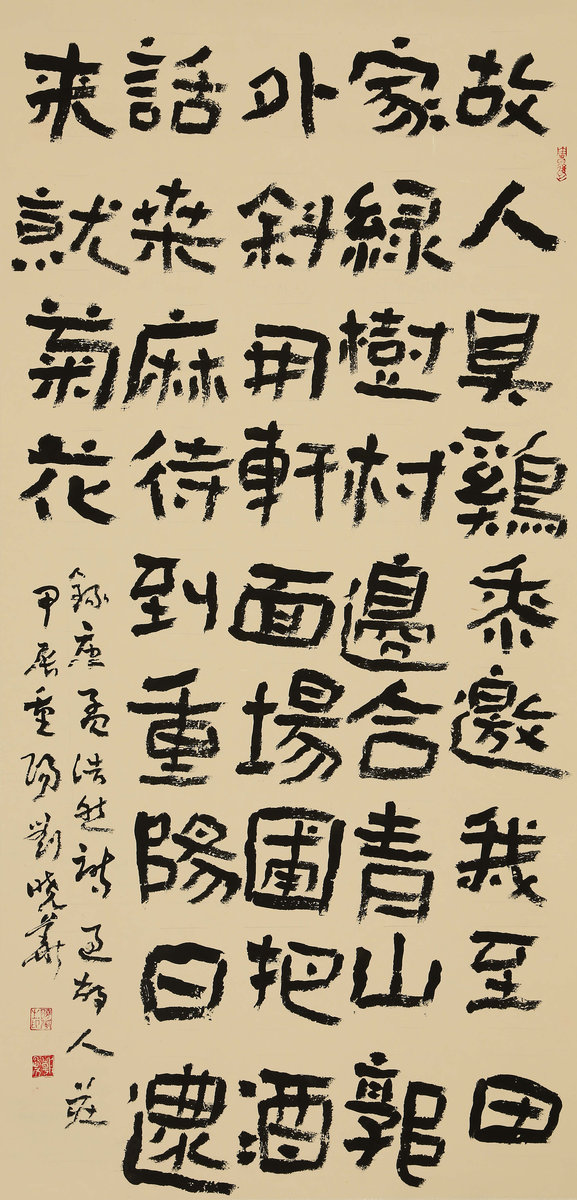 故人具鷄黍邀我至田
家綠樹村邊合青山郭
外斜開軒面場圃把酒
話桒麻待到重陽日還
来就菊花
錄唐孟浩然詩過故人莊
甲辰重陽劉曉